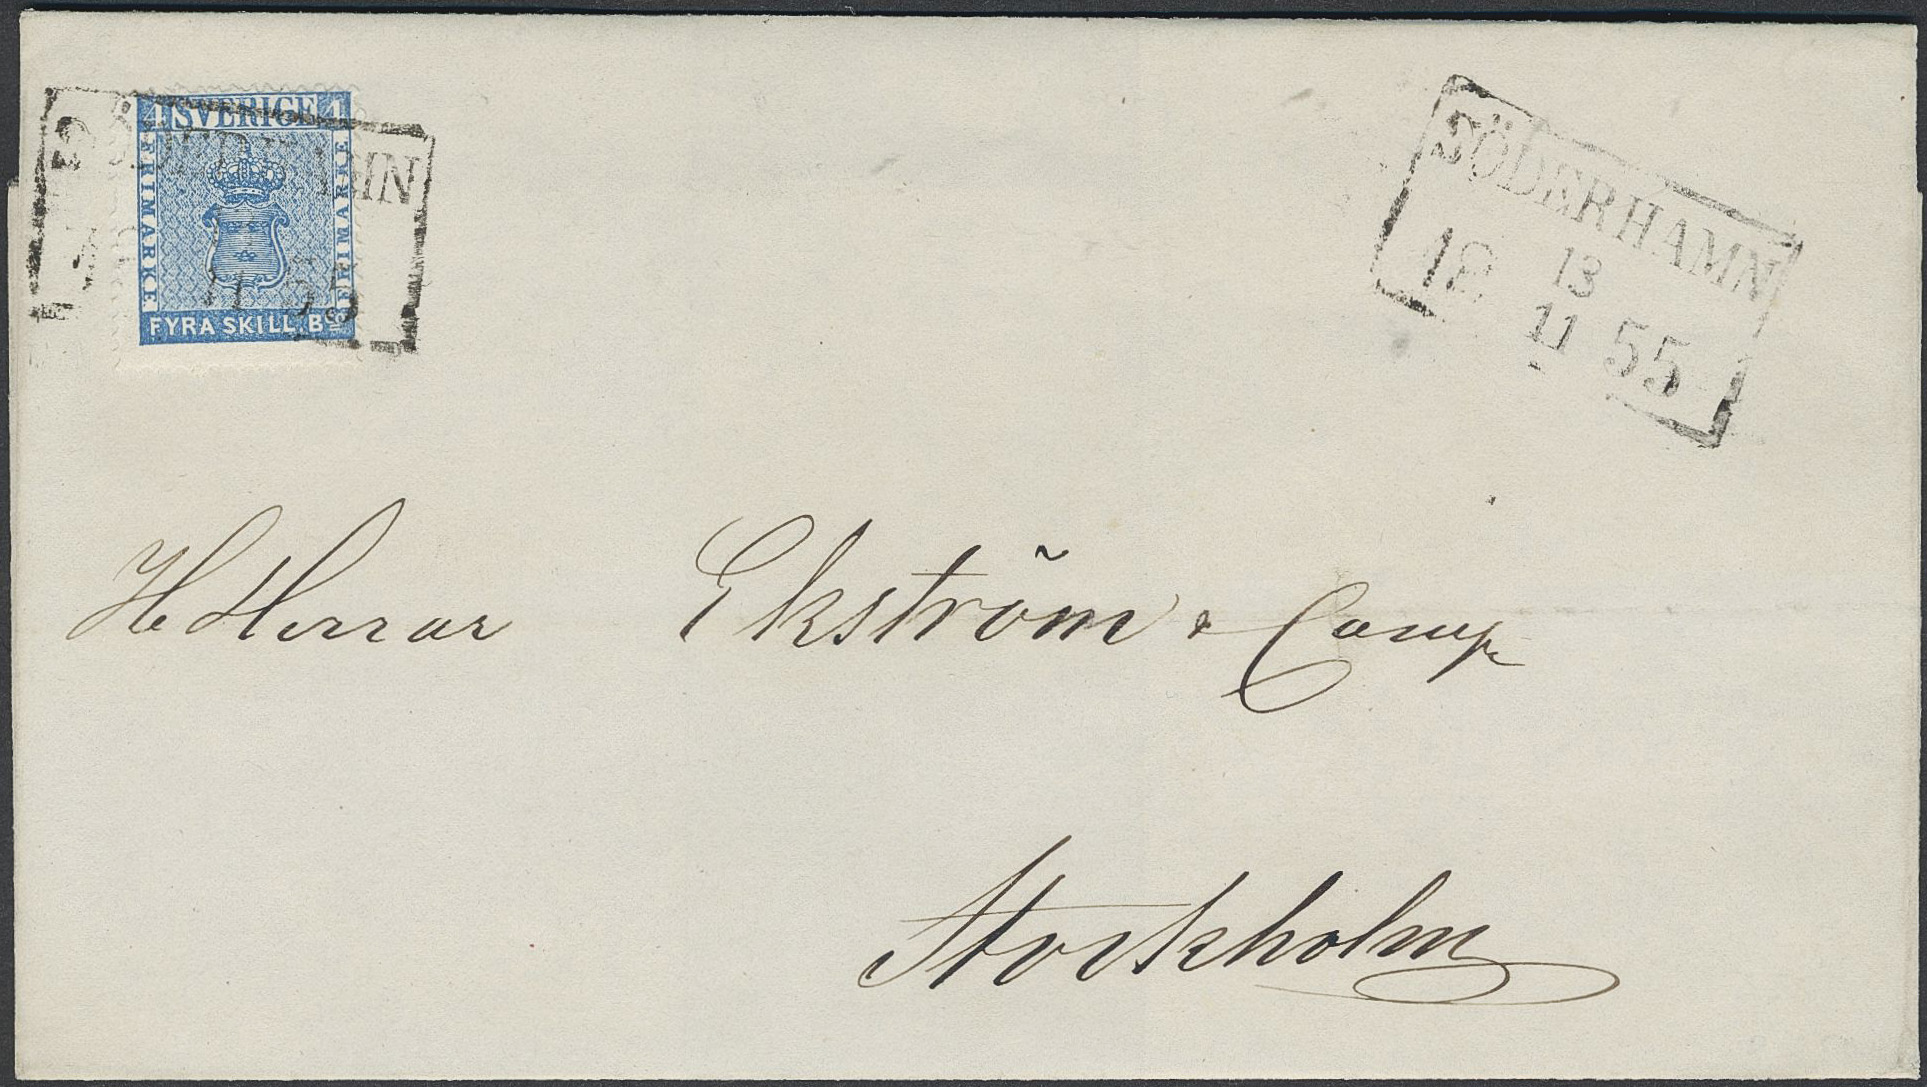 4 SVERIGE 4
FRIMARKE
FRIMARKE
FYRA SKILL. Bco
SÖDERHAMN
11 55
SÖDERHAMN
13
18 11 55
H Herrar Ekström & Comp
Stockholm